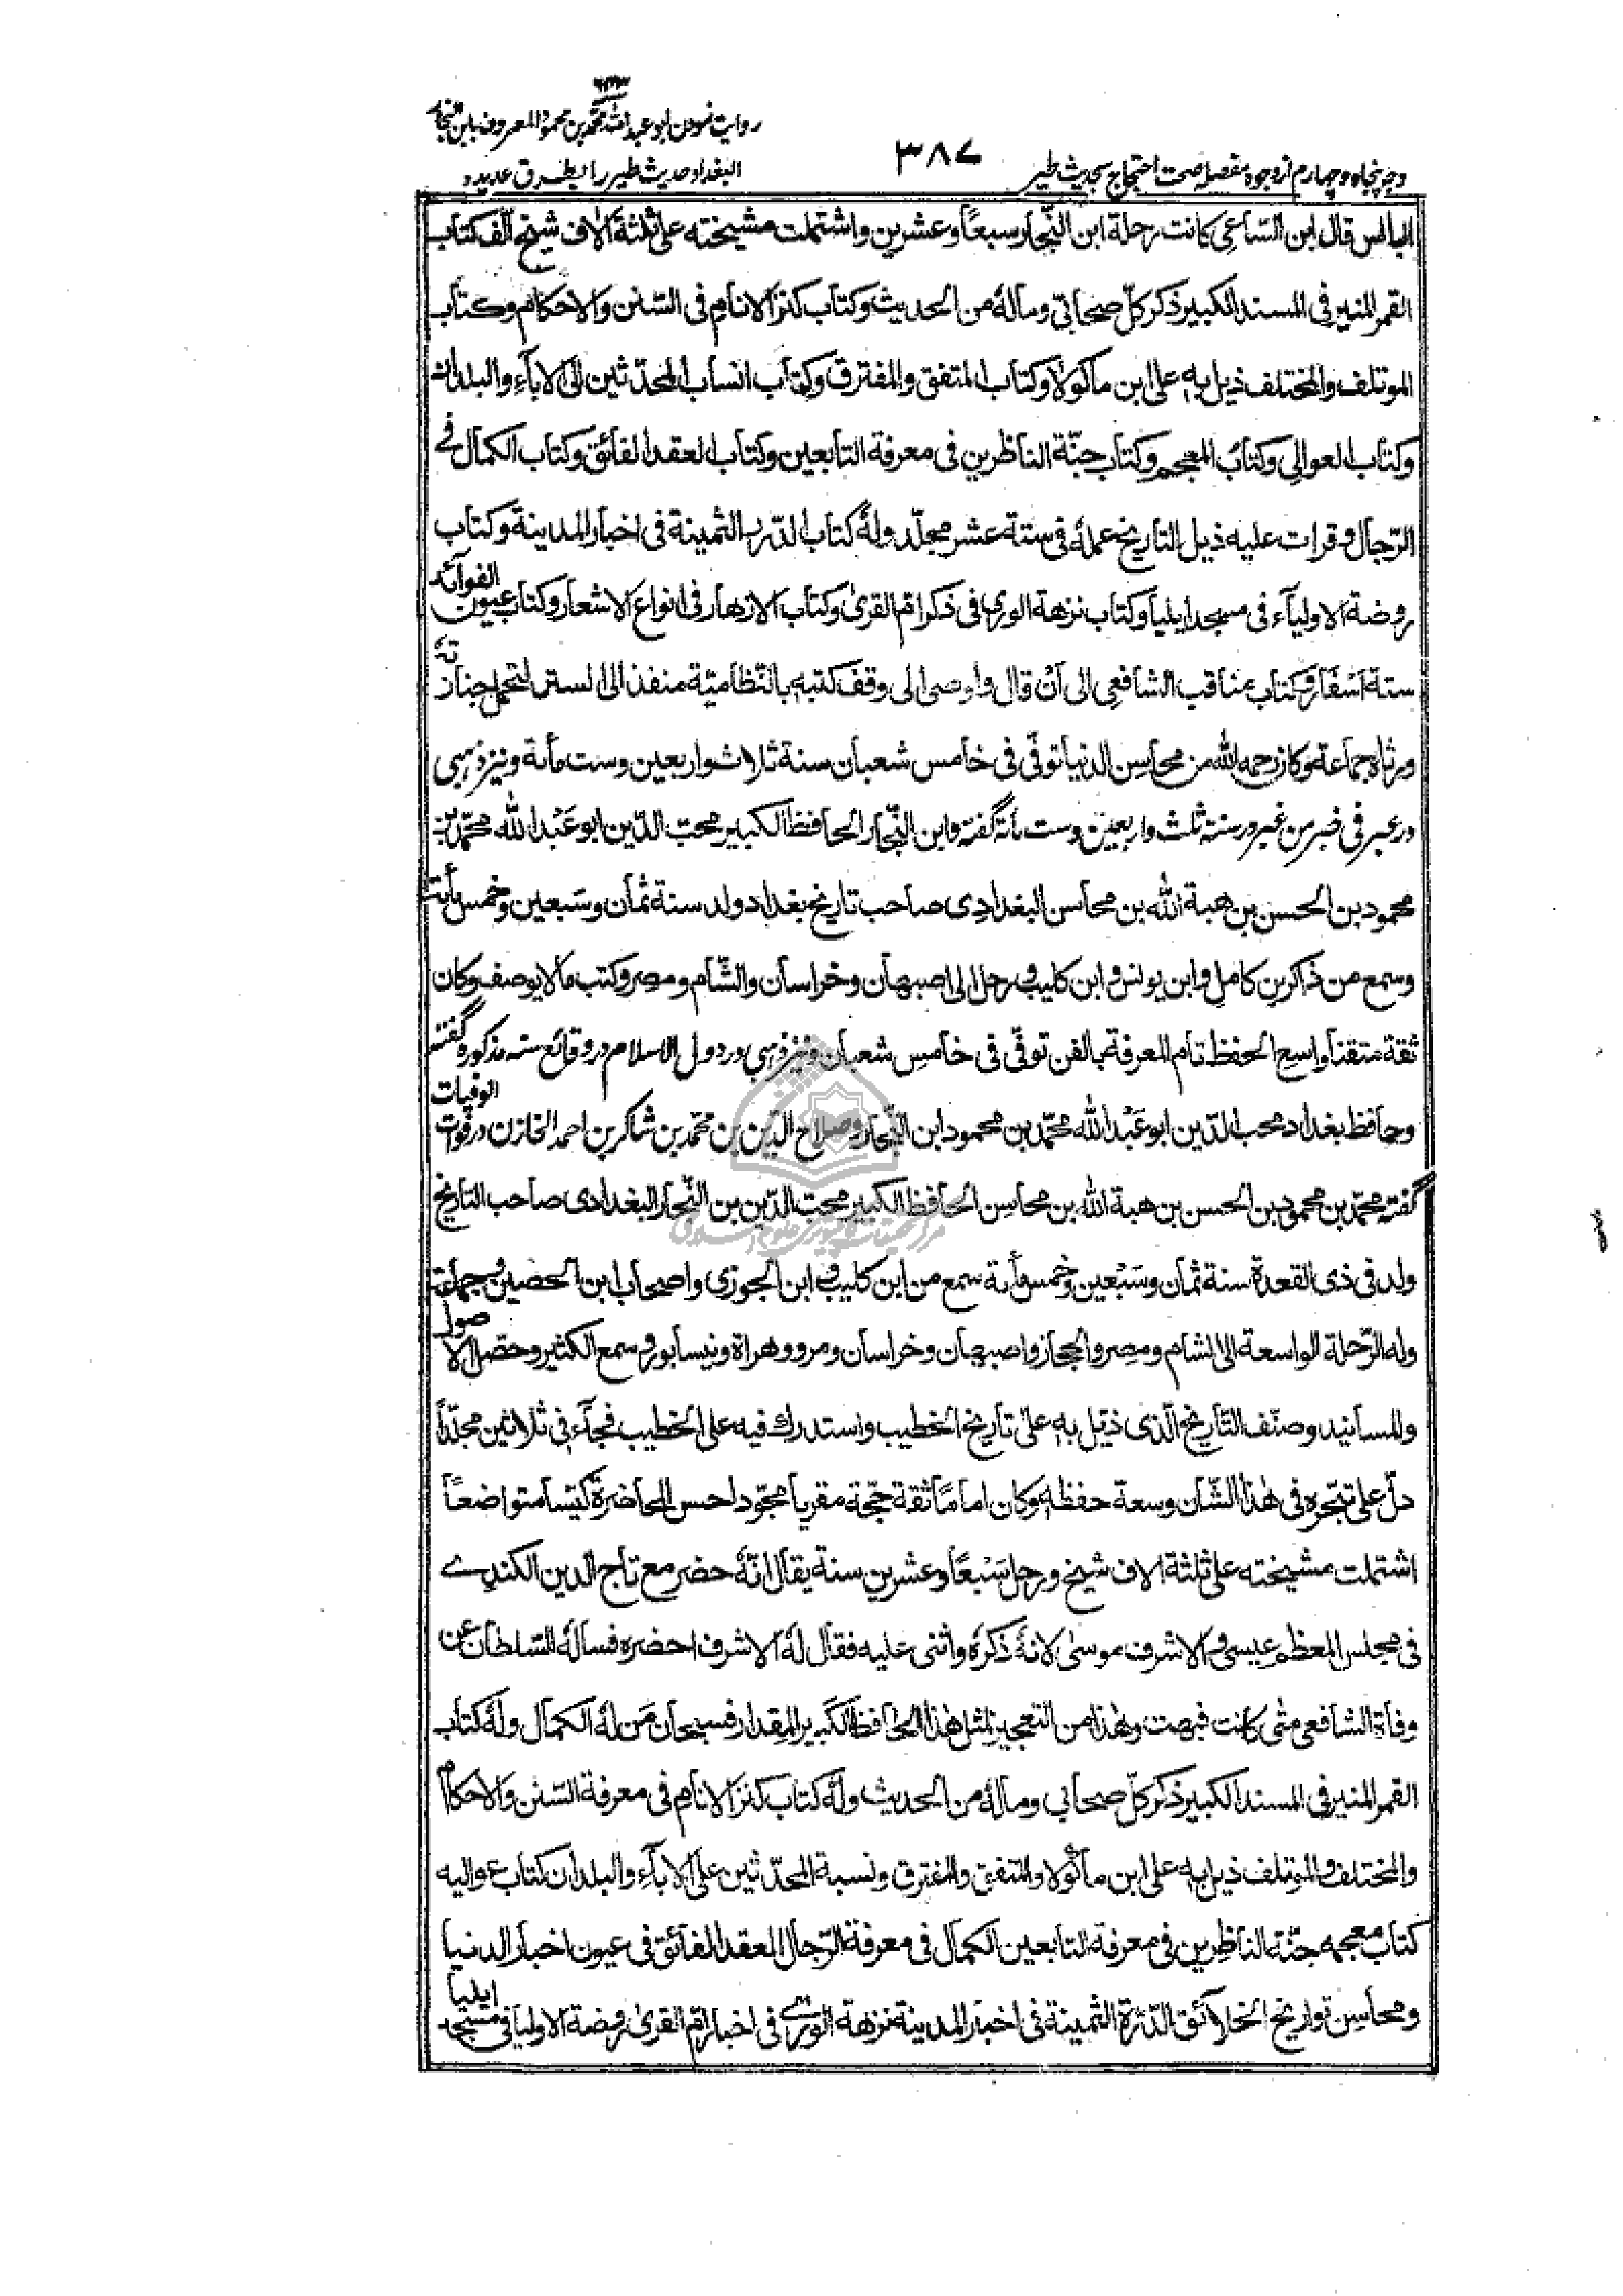 ۶۴۳
روایت نمودن ابو عبد الله محمد بن محمود المعروف بابن النجار
البغدادی حدیث طیر را بطرق عدیده
۳۸۷
وجه پنجاه و چهارم از وجوه مفصله صحت احتجاج بحدیث طیر
البالس قال ابن السّاعی کانت رحلة ابن النّجار سبعاً وعشرین واشتملت مشیخته علی ثلثة آلاف شیخ الّف کتاب
القمر المنیر فی المسند الکبیر ذکر کلّ صحابیّ وماله من الحدیث وکتاب کنز الانام فی السّنن والاحکام وکتاب
الموتلف والمختلف ذیل به علی ابن ماکولا وکتاب المتفق والمفترق وکتاب انساب المحدّثین الی الآباء والبلدان
وکتاب العوالی وکتاب المعجم وکتاب جنّة الناظرین فی معرفة التابعین وکتاب العقد الفائق وکتاب الکمال فی
الرّجال وقرات علیه ذیل التاریخ عمله فی ستة عشر مجلّد وله کتاب الدّرر الثمینة فی اخبار المدینة وکتاب
روضة الاولیآء فی مسجد ایلیا وکتاب نزهة الوری فی ذکر ام القری وکتاب الازهار فی انواع الاشعار وکتاب عیون الفوائد
ستة اسفار وکتاب مناقب الشافعی الی ان قال واوصی الی وقف کتبه بالنّظامیّة منفذ الی الستر لتحمل جنازته
ورثاه جماعة وکان رحمه الله من محاسن الدنیا توفّی فی خامس شعبان سنة ثلاث واربعین وست مأة ونیز ذهبی
در عبر فی خبر من غبر در سنة ثلث واربعین وست مأة گفته وابن النّجار الحافظ الکبیر محبّ الدّین ابو عبد الله محمّد بن
محمود بن الحسن بن هبة الله بن محاسن البغدادی صاحب تاریخ بغداد ولد سنة ثمان وسبعین وخمس مأة
وسمع من ذاکر بن کامل وابن یونس وابن کلیب ورحل الی اصبهان وخراسان والشّام ومصر وکتب مالا یوصف وکان
ثقة متقنا واسع الحفظ تام المعرفة بالفن توفّی فی خامس شعبان ونیز ذهبی در دول الاسلام در وقائع سنه مذکوره گفته
وحافظ بغداد محب الدّین ابو عبد الله محمّد بن محمود ابن النّجار وصلاح الدّین بن محمد بن شاکر بن احمد الخازن در فوات الوفیات
گفته محمّد بن محمود بن الحسن بن هبة الله بن محاسن الحافظ الکبیر محبّ الدّین بن النّجار البغدادی صاحب التاریخ
ولد فی ذی القعدة سنة ثمان وسبعین وخمس مأة سمع من ابن کلیب وابن الجوزی واصحاب ابن الحصین وجماعة
وله الرّحلة الواسعة الی الشام ومصر والحجاز واصبهان وخراسان ومرو وهراة ونیسابور وسمع الکثیر وحصّل الاصول
والمسانید وصنّف التّاریخ الّذی ذیّل به علی تاریخ الخطیب واستدرک فیه علی الخطیب فجآء فی ثلاثین مجلّدا
دلّ علی تبحّره فی هذا الشّان وسعة حفظه وکان اماماً ثقة حجّة مقریا مجوّدا حسن المحاضرة کیّسا متواضعاً
اشتملت مشیخته علی ثلثة الاف شیخ ورحل سبعاً وعشرین سنة یقال انّه حضر مع تاج الدین الکندی
فی مجلس المعظم عیسی والاشرف موسی لانه ذکره واثنی علیه فقال له الاشرف احضره فساله السّلطان عن
وفاة الشافعی متی کانت فبهت وهذا من التعجیز لمثل هذا الحافظ الکبیر المقدار فسبحان من له الکمال وله کتاب
القمر المنیر فی المسند الکبیر ذکر کلّ صحابی وماله من الحدیث وله کتاب کنز الانام فی معرفة السّنن والاحکام
والمختلف والموتلف ذیل به علی ابن ماکولا والمتفق والمفترق ونسبة المحدّثین علی الآباء والبلدان کتاب عوالیه
کتاب معجمه جنّة الناظرین فی معرفة التابعین الکمال فی معرفة الرّجال العقد الفائق فی عیون اخبار الدنیا
ومحاسن تواریخ الخلائق الدّرّة الثمینة فی اخبار المدینة نزهة الوری فی اخبار ام القری روضة الاولیا فی مسجد ایلیا